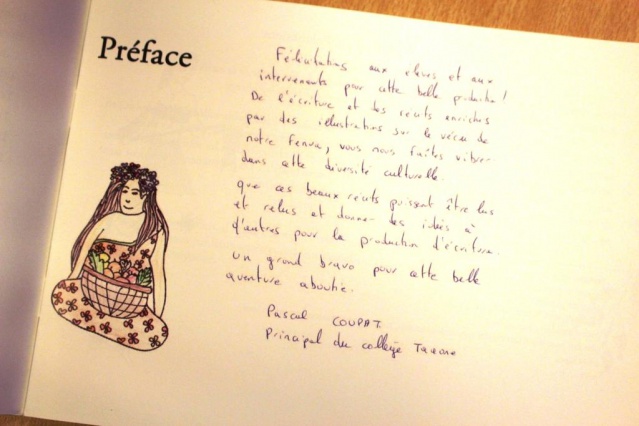 Préface
Félicitations aux élèves et aux
intervenants pour cette belle production !
De l'écriture et des récits enrichis
par des illustrations sur le vécu de
notre Fenua, vous nous faites vibrer
dans cette diversité culturelle.
que ces beaux récits puissent être lus
et relus et donner des idées à
d'autres pour la production d'écriture.
un grand bravo pour cette belle
aventure aboutie.
Pascal COUPAT
Principal du collège